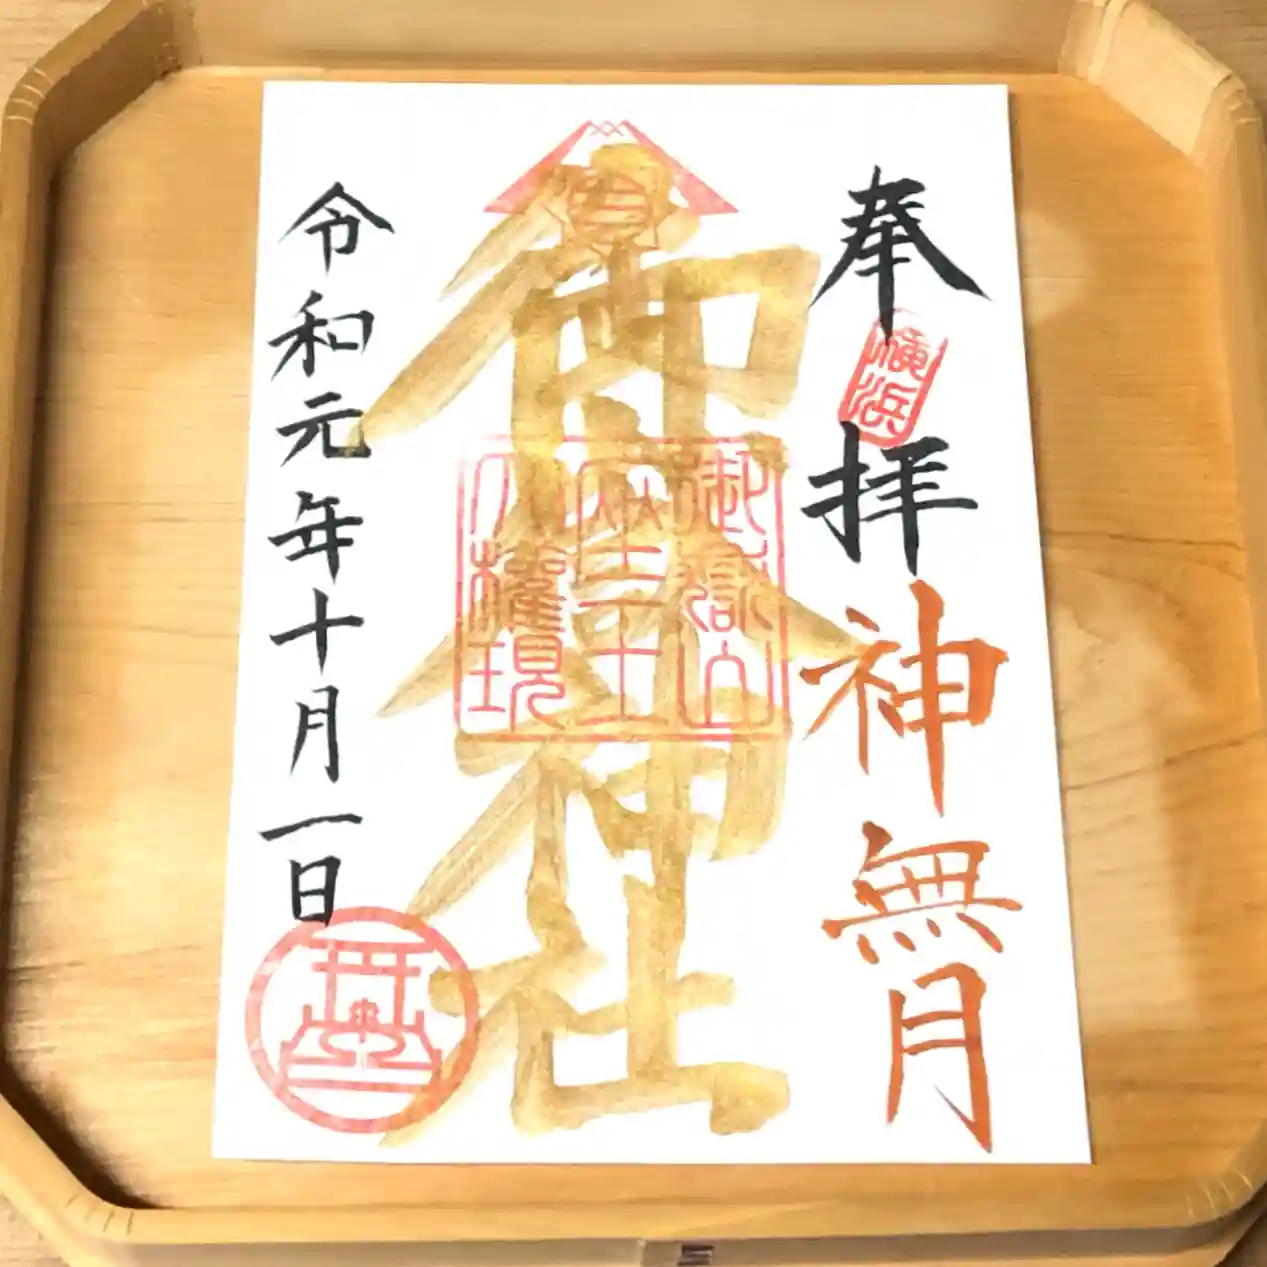 奉拝 神無月
横浜
御嶽神社
御嶽山
大權現
令和元年十月一日